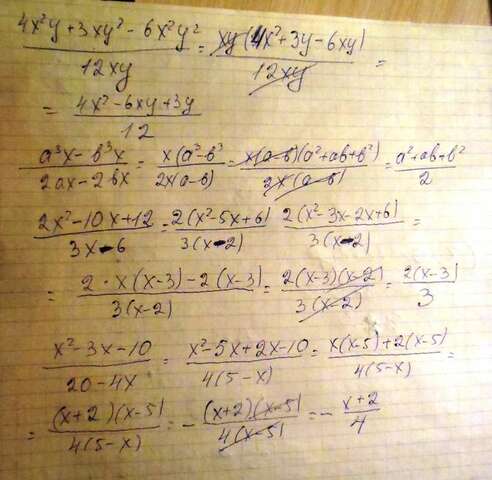 (4x²y + 3xy² - 6x²y²)/(12xy) = (xy(4x² + 3y - 6xy))/(12xy) =
= (4x² - 6xy + 3y)/12
(a³x - b³x)/(2ax - 2bx) = (x(a³ - b³)/(2x(a - b)) = (x(a - b)(a² + ab + b²))/(2x(a - b)) = (a² + ab + b²)/2
(2x² - 10x + 12)/(3x - 6) = (2(x² - 5x + 6))/(3(x - 2)) (2(x² - 3x - 2x + 6))/(3(x - 2)) =
= (2 · x(x - 3) - 2(x - 3))/(3(x - 2)) = (2(x - 3)(x - 2))/(3(x - 2)) = (2(x - 3))/3
(x² - 3x - 10)/(20 - 4x) = (x² - 5x + 2x - 10)/(4(5 - x)) = (x(x - 5) + 2(x - 5))/(4(5 - x)) =
= ((x + 2)(x - 5))/(4(5 - x)) = - ((x + 2)(x - 5))/(4(x - 5)) = - (x + 2)/4